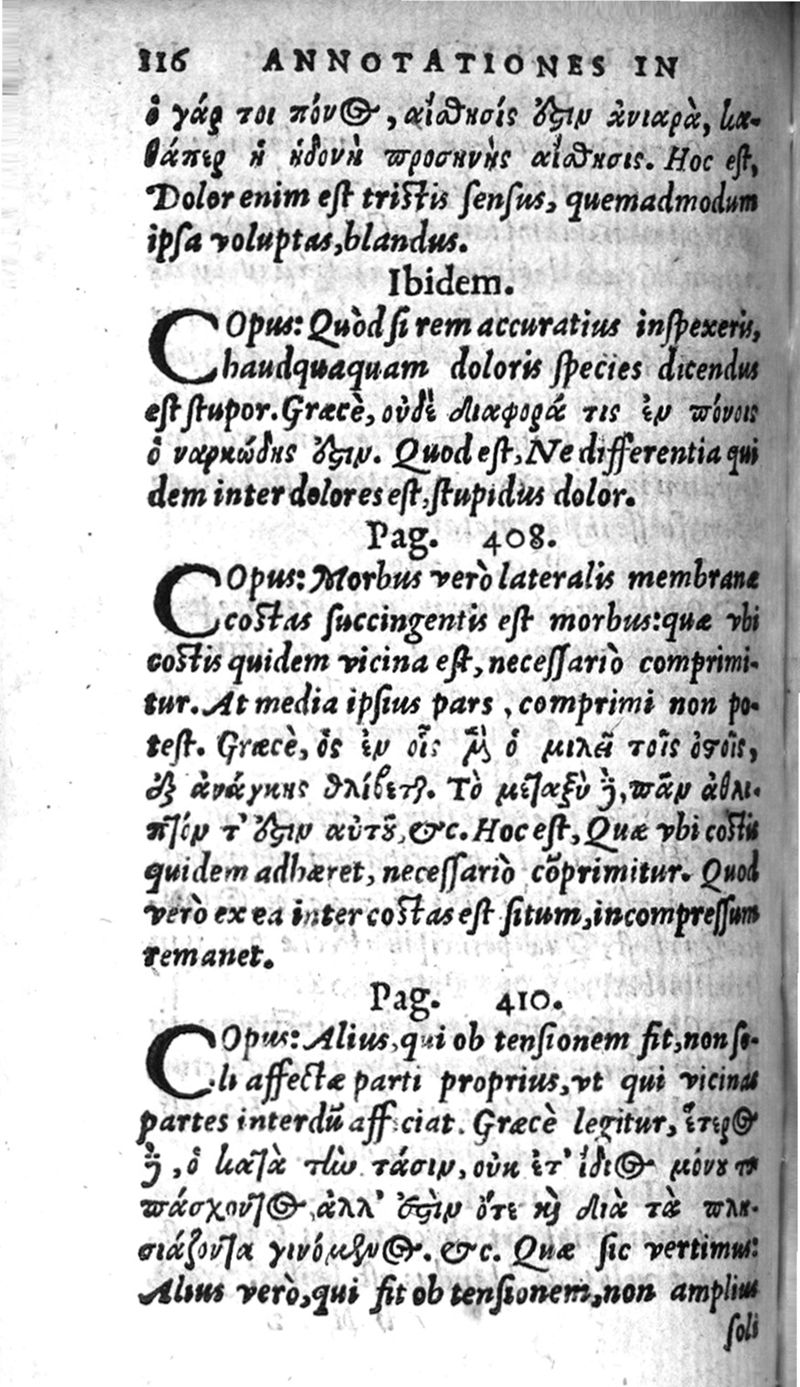 116 ANNOTATIONES IN
ὁ γάρ τοι πόνος, αἴσθησίς ἐστιν ἀνιαρὰ, κα-
θάπερ ἡ ἡδονὴ προσηνὴς αἴσθησις. Hoc eſt,
Dolor enim eſt triſtis ſenſus, quemadmodum
ipſa voluptas, blandus.
Ibidem.
COpus: Quòd ſi rem accuratius inſpexeris,
haudquaquam doloris ſpecies dicendus
eſt ſtupor. Græcè, οὐδὲ διαφορά τις ἐν πόνοις
ὁ ναρκώδης ἐστιν. Quod eſt, Ne differentia qui
dem inter dolores eſt, ſtupidus dolor.
Pag. 408.
COpus: Morbus verò lateralis membranæ
coſtas ſuccingentis eſt morbus: quæ vbi
coſtis quidem vicina eſt, neceſſariò comprimi-
tur. At media ipſius pars, comprimi non po-
teſt. Græcè, ὃς ἐν οἷς μὲν ὁ μιλεῖ τοῖς ὀστοῖς,
ἐξ ἀνάγκης θλίβεται. Τὸ μεταξὺ δὲ, πᾶν ἀθλι-
πτόν τ' ἐστιν αὐτοῦ, &c. Hoc eſt, Quæ vbi coſtis
quidem adhæret, neceſſariò cõprimitur. Quod
verò ex ea inter coſtas eſt ſitum, incompreſſum
remanet.
Pag. 410.
COpus: Alius, qui ob tenſionem fit, non ſo-
li affectæ parti proprius, vt qui vicinas
partes interdũ afficiat. Græcè legitur, ἕτερος
δὲ, ὁ κατὰ τὴν τάσιν, οὐκ ἔτ' ἴδιος μόνου τοῦ
πάσχοντος, ἀλλ' ἔστιν ὅτε καὶ διὰ τὰ πλη-
σιάζοντα γινόμενος. &c. Quæ ſic vertimus:
Alius verò, qui fit ob tenſionem, non amplius
ſoli